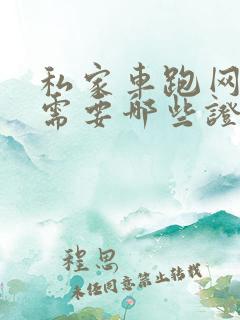 私家车跑网
需要哪些證
程思
未经同意禁止转载